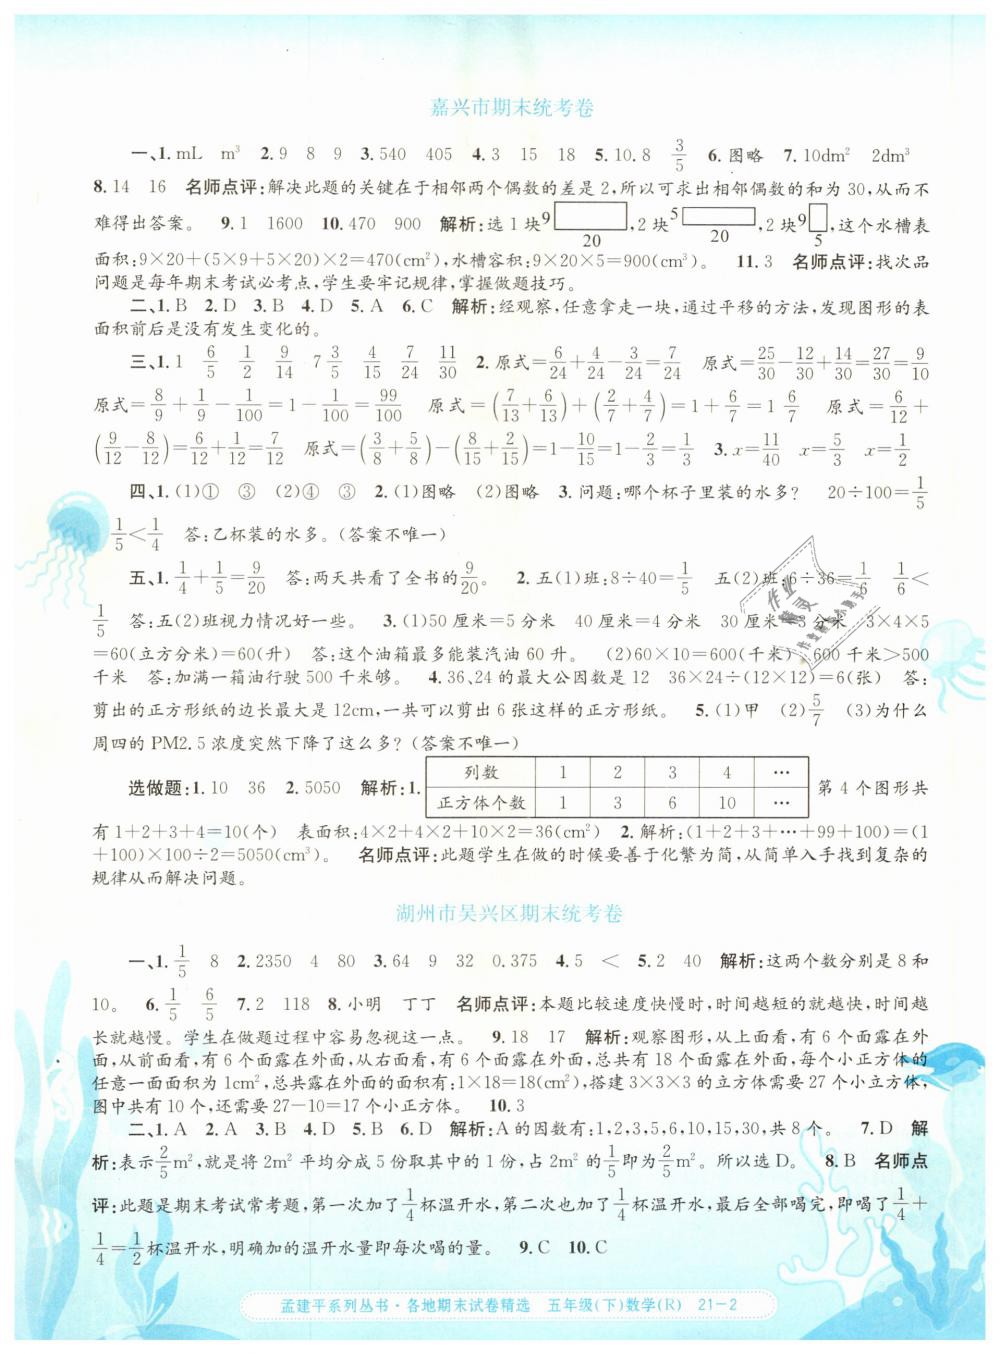 嘉兴市期末统考卷
一、1. mL m³ 2. 9 8 9 3. 540 405 4. 3 15 18 5. 10.8 3/5 6. 图略 7. 10dm² 2dm³
8. 14 16 名师点评:解决此题的关键在于相邻两个偶数的差是2,所以可求出相邻偶数的和为30,从而不
难得出答案。 9. 1 1600 10. 470 900 解析:选1块9 20,2块5 20,2块9 5,这个水槽表
面积:9×20+(5×9+5×20)×2=470(cm²),水槽容积:9×20×5=900(cm³)。 11. 3 名师点评:找次品
问题是每年期末考试必考点,学生要牢记规律,掌握做题技巧。
二、1. B 2. D 3. B 4. D 5. A 6. C 解析:经观察,任意拿走一块,通过平移的方法,发现图形的表
面积前后是没有发生变化的。
三、1. 1 6/5 1/2 9/14 7 3/5 4/15 7/24 11/30 2. 原式=6/24+4/24-3/24=7/24 原式=25/30-12/30+14/30=27/30=9/10
原式=8/9+1/9-1/100=1-1/100=99/100 原式=(7/13+6/13)+(2/7+4/7)=1+6/7=1 6/7 原式=6/12+
(9/12-8/12)=6/12+1/12=7/12 原式=(3/8+5/8)-(8/15+2/15)=1-10/15=1-2/3=1/3 3. x=11/40 x=5/3 x=1/2
四、1. (1)① ③ (2)④ ③ 2. (1)图略 (2)图略 3. 问题:哪个杯子里装的水多? 20÷100=1/5
1/5<1/4 答:乙杯装的水多。(答案不唯一)
五、1. 1/4+1/5=9/20 答:两天共看了全书的9/20。 2. 五(1)班:8÷40=1/5 五(2)班:6÷36=1/6 1/6<
1/5 答:五(2)班视力情况好一些。 3. (1)50厘米=5分米 40厘米=4分米 30厘米=3分米 3×4×5
=60(立方分米)=60(升) 答:这个油箱最多能装汽油60升。 (2)60×10=600(千米) 600千米>500
千米 答:加满一箱油行驶500千米够。 4. 36、24的最大公因数是12 36×24÷(12×12)=6(张) 答:
剪出的正方形纸的边长最大是12cm,一共可以剪出6张这样的正方形纸。 5. (1)甲 (2)5/7 (3)为什么
周四的PM2.5浓度突然下降了这么多?(答案不唯一)
选做题:1. 10 36 2. 5050 解析:1. 列数 1 2 3 4 … 第4个图形共
正方体个数 1 3 6 10 …
有1+2+3+4=10(个) 表面积:4×2+4×2+10×2=36(cm²) 2. 解析:(1+2+3+…+99+100)=(1
+100)×100÷2=5050(cm³)。 名师点评:此题学生在做的时候要善于化繁为简,从简单入手找到复杂的
规律从而解决问题。
湖州市吴兴区期末统考卷
一、1. 1/5 8 2. 2350 4 80 3. 64 9 32 0.375 4. 5 < 5. 2 40 解析:这两个数分别是8和
10。 6. 1/5 6/5 7. 2 118 8. 小明 丁丁 名师点评:本题比较速度快慢时,时间越短的就越快,时间越
长就越慢。学生在做题过程中容易忽视这一点。 9. 18 17 解析:观察图形,从上面看,有6个面露在外
面,从前面看,有6个面露在外面,从右面看,有6个面露在外面,总共有18个面露在外面,每个小正方体的
任意一面面积为1cm²,总共露在外面的面积有:1×18=18(cm²),搭建3×3×3的立方体需要27个小立方体,
图中共有10个,还需要27-10=17个小正方体。 10. 3
二、1. A 2. A 3. B 4. D 5. B 6. D 解析:A的因数有:1,2,3,5,6,10,15,30,共8个。 7. D 解
析:表示2/5m²,就是将2m²平均分成5份取其中的1份,占2m²的1/5即为2/5m²。所以选D。 8. B 名师点
评:此题是期末考试常考题,第一次加了1/4杯温开水,第二次也加了1/4杯温开水,最后全部喝完,即喝了1/4+
1/4=1/2杯温开水,明确加的温开水量即每次喝的量。 9. C 10. C
孟建平系列丛书·各地期末试卷精选 五年级(下)数学(R) 21-2
作业
精灵